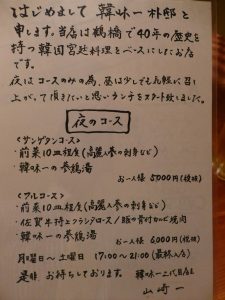 はじめまして 韓味一 朴邸と
申します。当店は鶴橋で40年の歴史を
持つ韓国宮廷料理をベースにしたお店
です。
夜はコースのみの為、昼は少しでも気軽に召し
上がって頂きたいと思いランチをスタート致しました。
夜のコース
〈サンゲタンコース〉
・前菜10皿程度(高麗人参の刺身など)
・韓味一の参鶏湯
お一人様 5000円(税抜)
〈フルコース〉
・前菜10皿程度(高麗人参の刺身など)
・佐賀牛特上フランダロース/豚の骨付カルビ焼肉
・韓味一の参鶏湯
お一人様 6,000円(税抜)
月曜日〜土曜日 17:00〜21:00(最終入店)
是非 お待ちしております。 韓味一二代目店主
山崎一